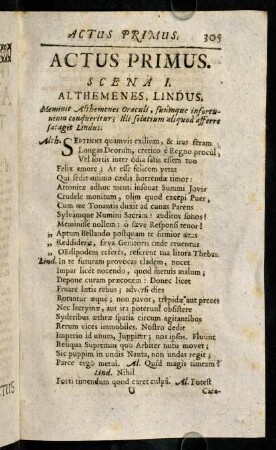 ACTUS PRIMUS. 305
ACTUS PRIMUS.
SCENA I.
ALTHEMENES, LINDUS.
Meminit Althemenes Oraculi, suúmque infortu-
nium conqueritur; illi solatium aliquod afferre
satagit Lindus.
Alth. SEPTENNE quamvis exilium, & iras feram
Longas Deorum, cretico è Regno procul,
Vel sortis inter odia satis essem tuo
Felix amore; At esse felicem vetat
Qui sedit animo cædis horrendæ timor:
Attonitæ adhuc menti insonat Summi Jovis
Crudele monitum, olim quod excepi Puer,
Cum me Tonantis duxit ad cunas Parens
Sylvamque Numini Sacram: auditos sonos!
Meminisse nollem: ô sæve Responsi tenor!
„ Aptum Bellando postquam te firmior ætas
„ Reddiderit, sæva Genitoris cæde cruentus
„ OEdipodem referes, referent tua litora Thebas.
Lind. In te futuram provocas cladem, nocet
Impar licet nocendo, quod metuis malum;
Depone curam præcocem: Donec licet
Fruare lætis rebus; adversi dies
Rotantur æquè; non pavor, trepidæ aut preces
Nec lacrymæ, aut ira poterunt obsistere
Syderibus æthræ spatia circum agitantibus
Rerum vices immobiles. Nostro dedit
Imperio id unum, Juppiter; nos ipsi. Fluunt
Reliqua Supremus quo Arbiter nutu movet;
Sic puppim in undis Nauta, non undas regit;
Parce ergo metui. Al. Quid magis timeam?
Lind. Nihil
Forti timendum quod caret culpâ. Al. Potest
U Care-